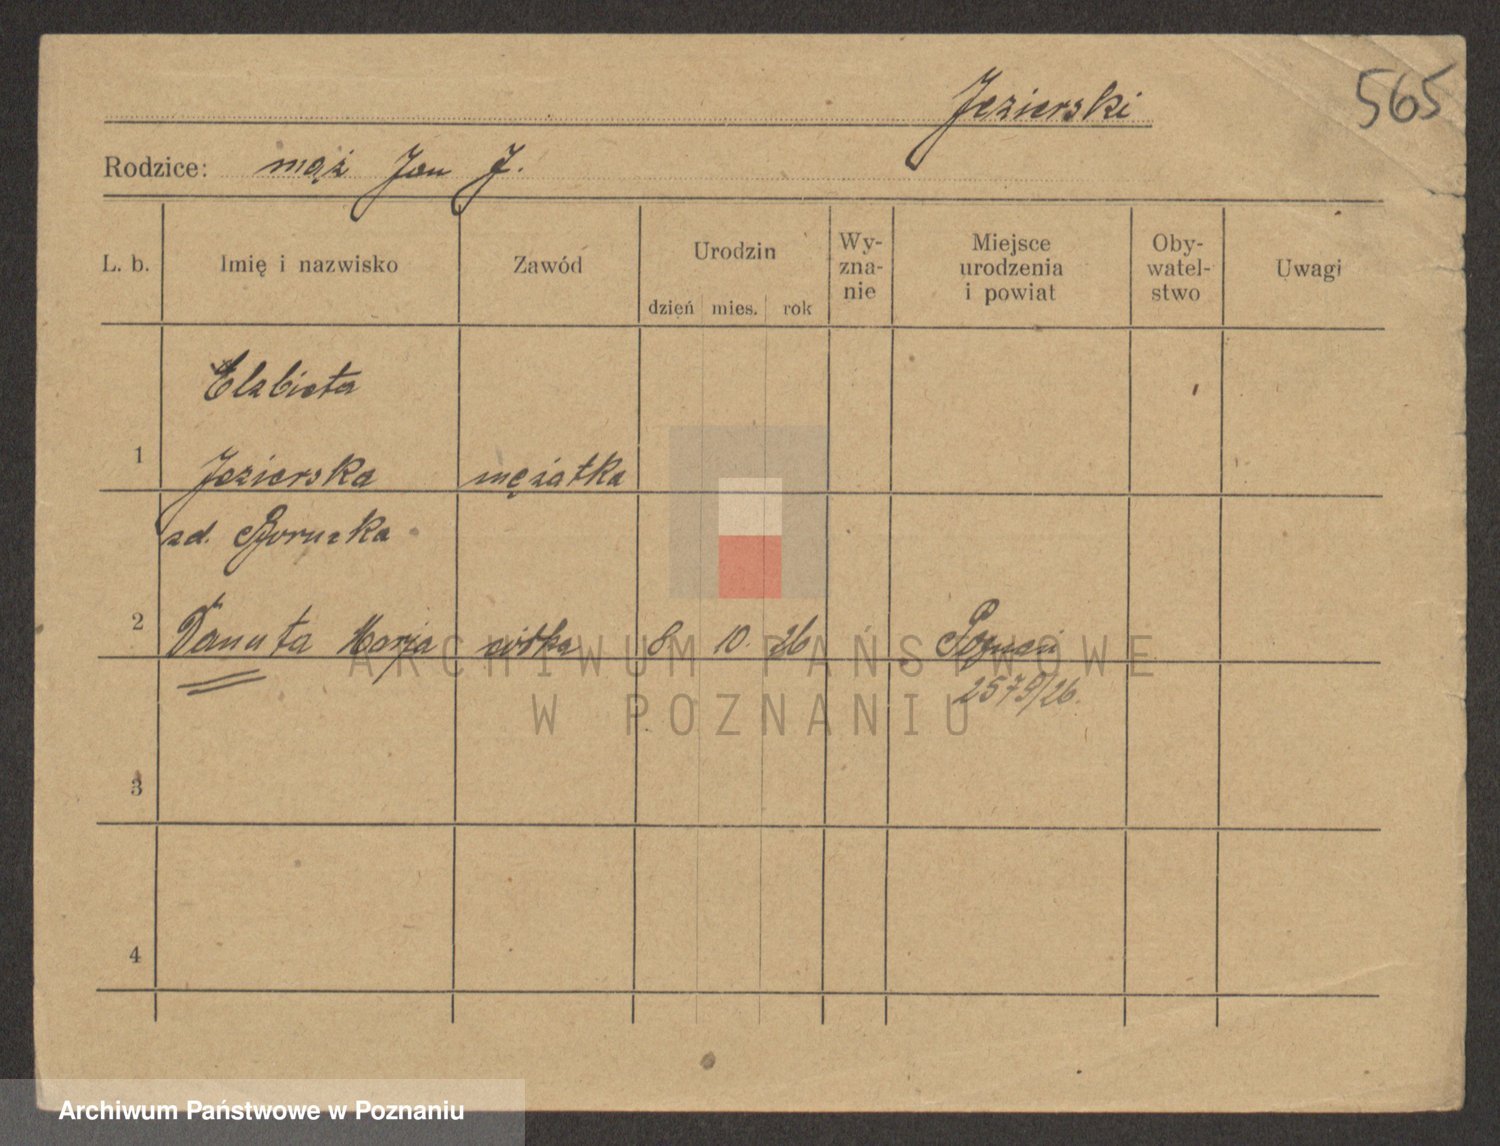 565
Jezierski
Rodzice: mąż Jan J.
L. b. Imię i nazwisko Zawód Urodzin dzień mies. rok Wy-zna-nie Miejsce urodzenia i powiat Oby-watel-stwo Uwagi
Elżbieta
1 Jezierska mężatka
zd. Boruszka
2 Danuta Marja córka 8 10. 26 Poznań
2579/26.
3
4
ARCHIWUM PAŃSTWOWE
W POZNANIU
Archiwum Państwowe w Poznaniu